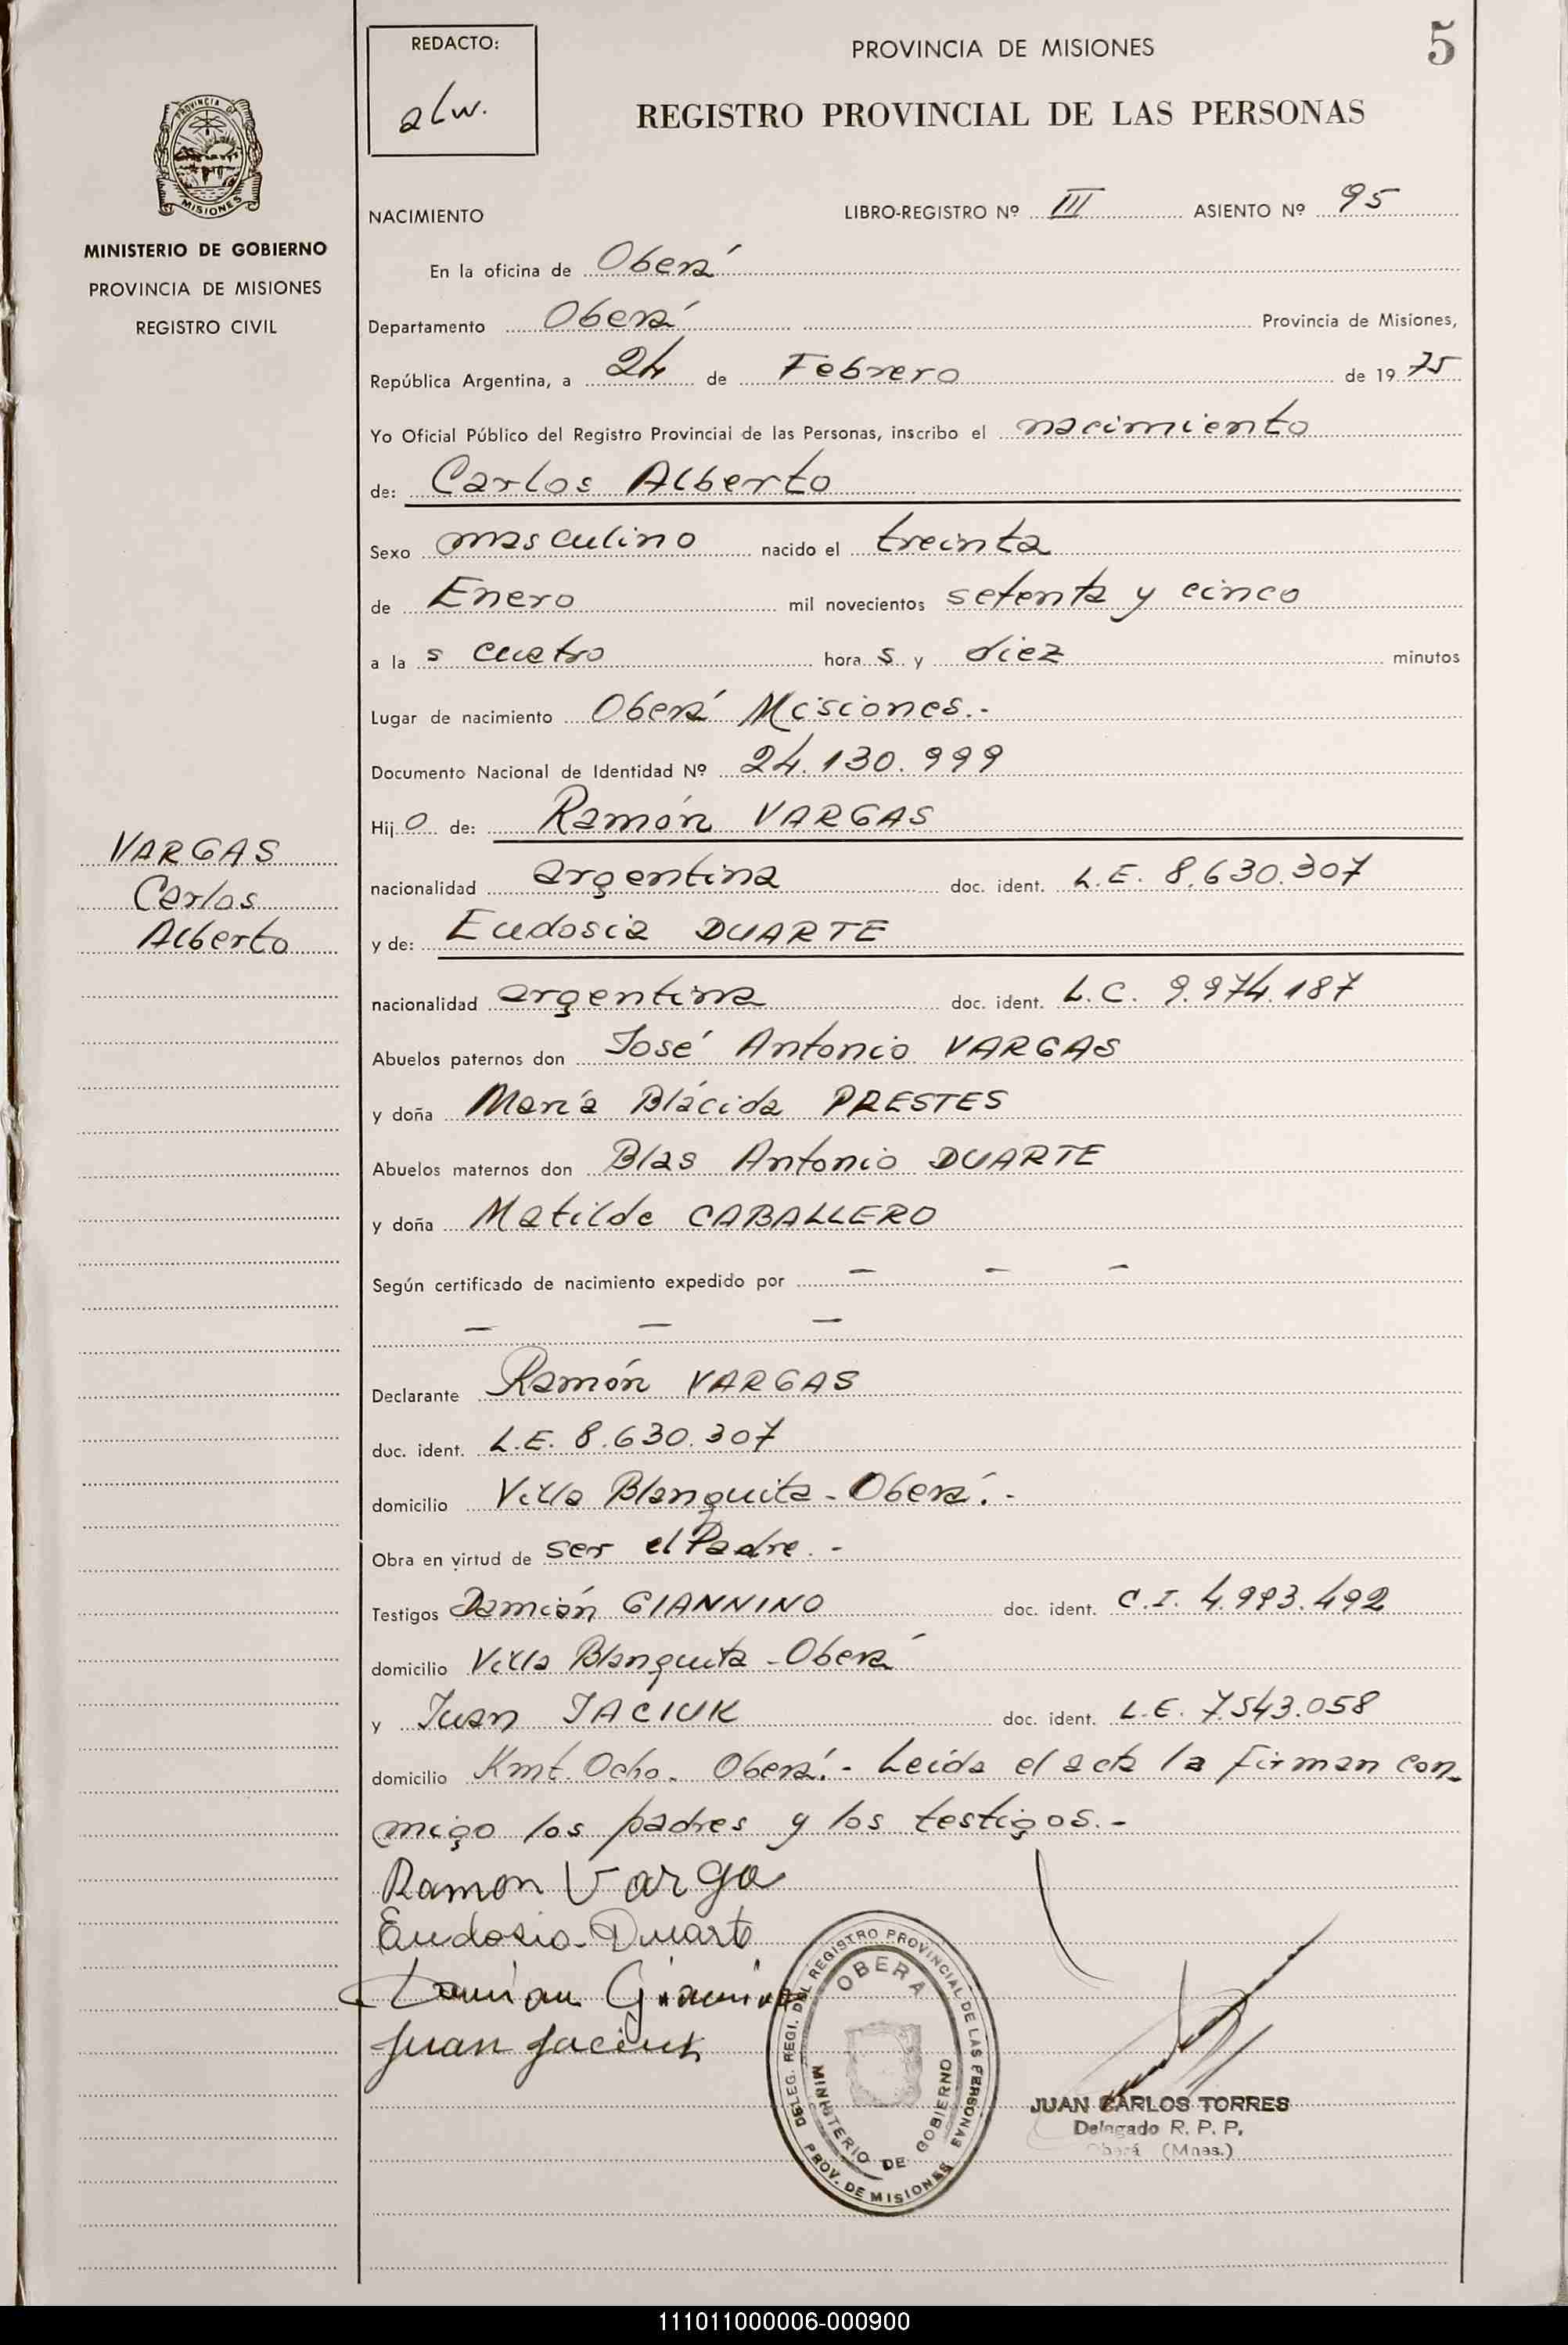 REDACTO:
alw.
PROVINCIA DE MISIONES
5
REGISTRO PROVINCIAL DE LAS PERSONAS
PROVINCIA DE
MISIONES
MINISTERIO DE GOBIERNO
PROVINCIA DE MISIONES
REGISTRO CIVIL
NACIMIENTO LIBRO-REGISTRO Nº III ASIENTO Nº 95
En la oficina de Oberá
Departamento Oberá Provincia de Misiones,
República Argentina, a 24 de Febrero de 1975
Yo Oficial Público del Registro Provincial de las Personas, inscribo el nacimiento
de: Carlos Alberto
Sexo masculino nacido el treinta
de Enero mil novecientos setenta y cinco
a la s cuatro hora s y diez minutos
Lugar de nacimiento Oberá Misiones.-
Documento Nacional de Identidad Nº 24.130.999
Hij o de: Ramón VARGAS
VARGAS
Carlos
Alberto
nacionalidad argentina doc. ident. L.E. 8.630.307
y de: Eudosia DUARTE
nacionalidad argentina doc. ident. L.C. 9.974.187
Abuelos paternos don José Antonio VARGAS
y doña María Blácida PRESTES
Abuelos maternos don Blas Antonio DUARTE
y doña Matilde CABALLERO
Según certificado de nacimiento expedido por - - -
- - -
Declarante Ramón VARGAS
doc. ident. L.E. 8.630.307
domicilio Villa Blanquita - Oberá.-
Obra en virtud de ser el Padre.-
Testigos Damián GIANNINO doc. ident. C.I. 4.993.492
domicilio Villa Blanquita - Oberá
y Juan JACIUK doc. ident. L.E. 7.543.058
domicilio Kmt. Ocho. Oberá.- Leída el acta la firman con
migo los padres y los testigos.-
Ramon Varga
Eudosia Duarte
Damian Giannino
Juan Jaciuk
DELEG. REGI. DEL REGISTRO PROVINCIAL DE LAS PERSONAS
OBERA
MINISTERIO DE GOBIERNO
PROV. DE MISIONES
JUAN CARLOS TORRES
Delegado R. P. P.
Oberá (Mnes.)
111011000006-000900